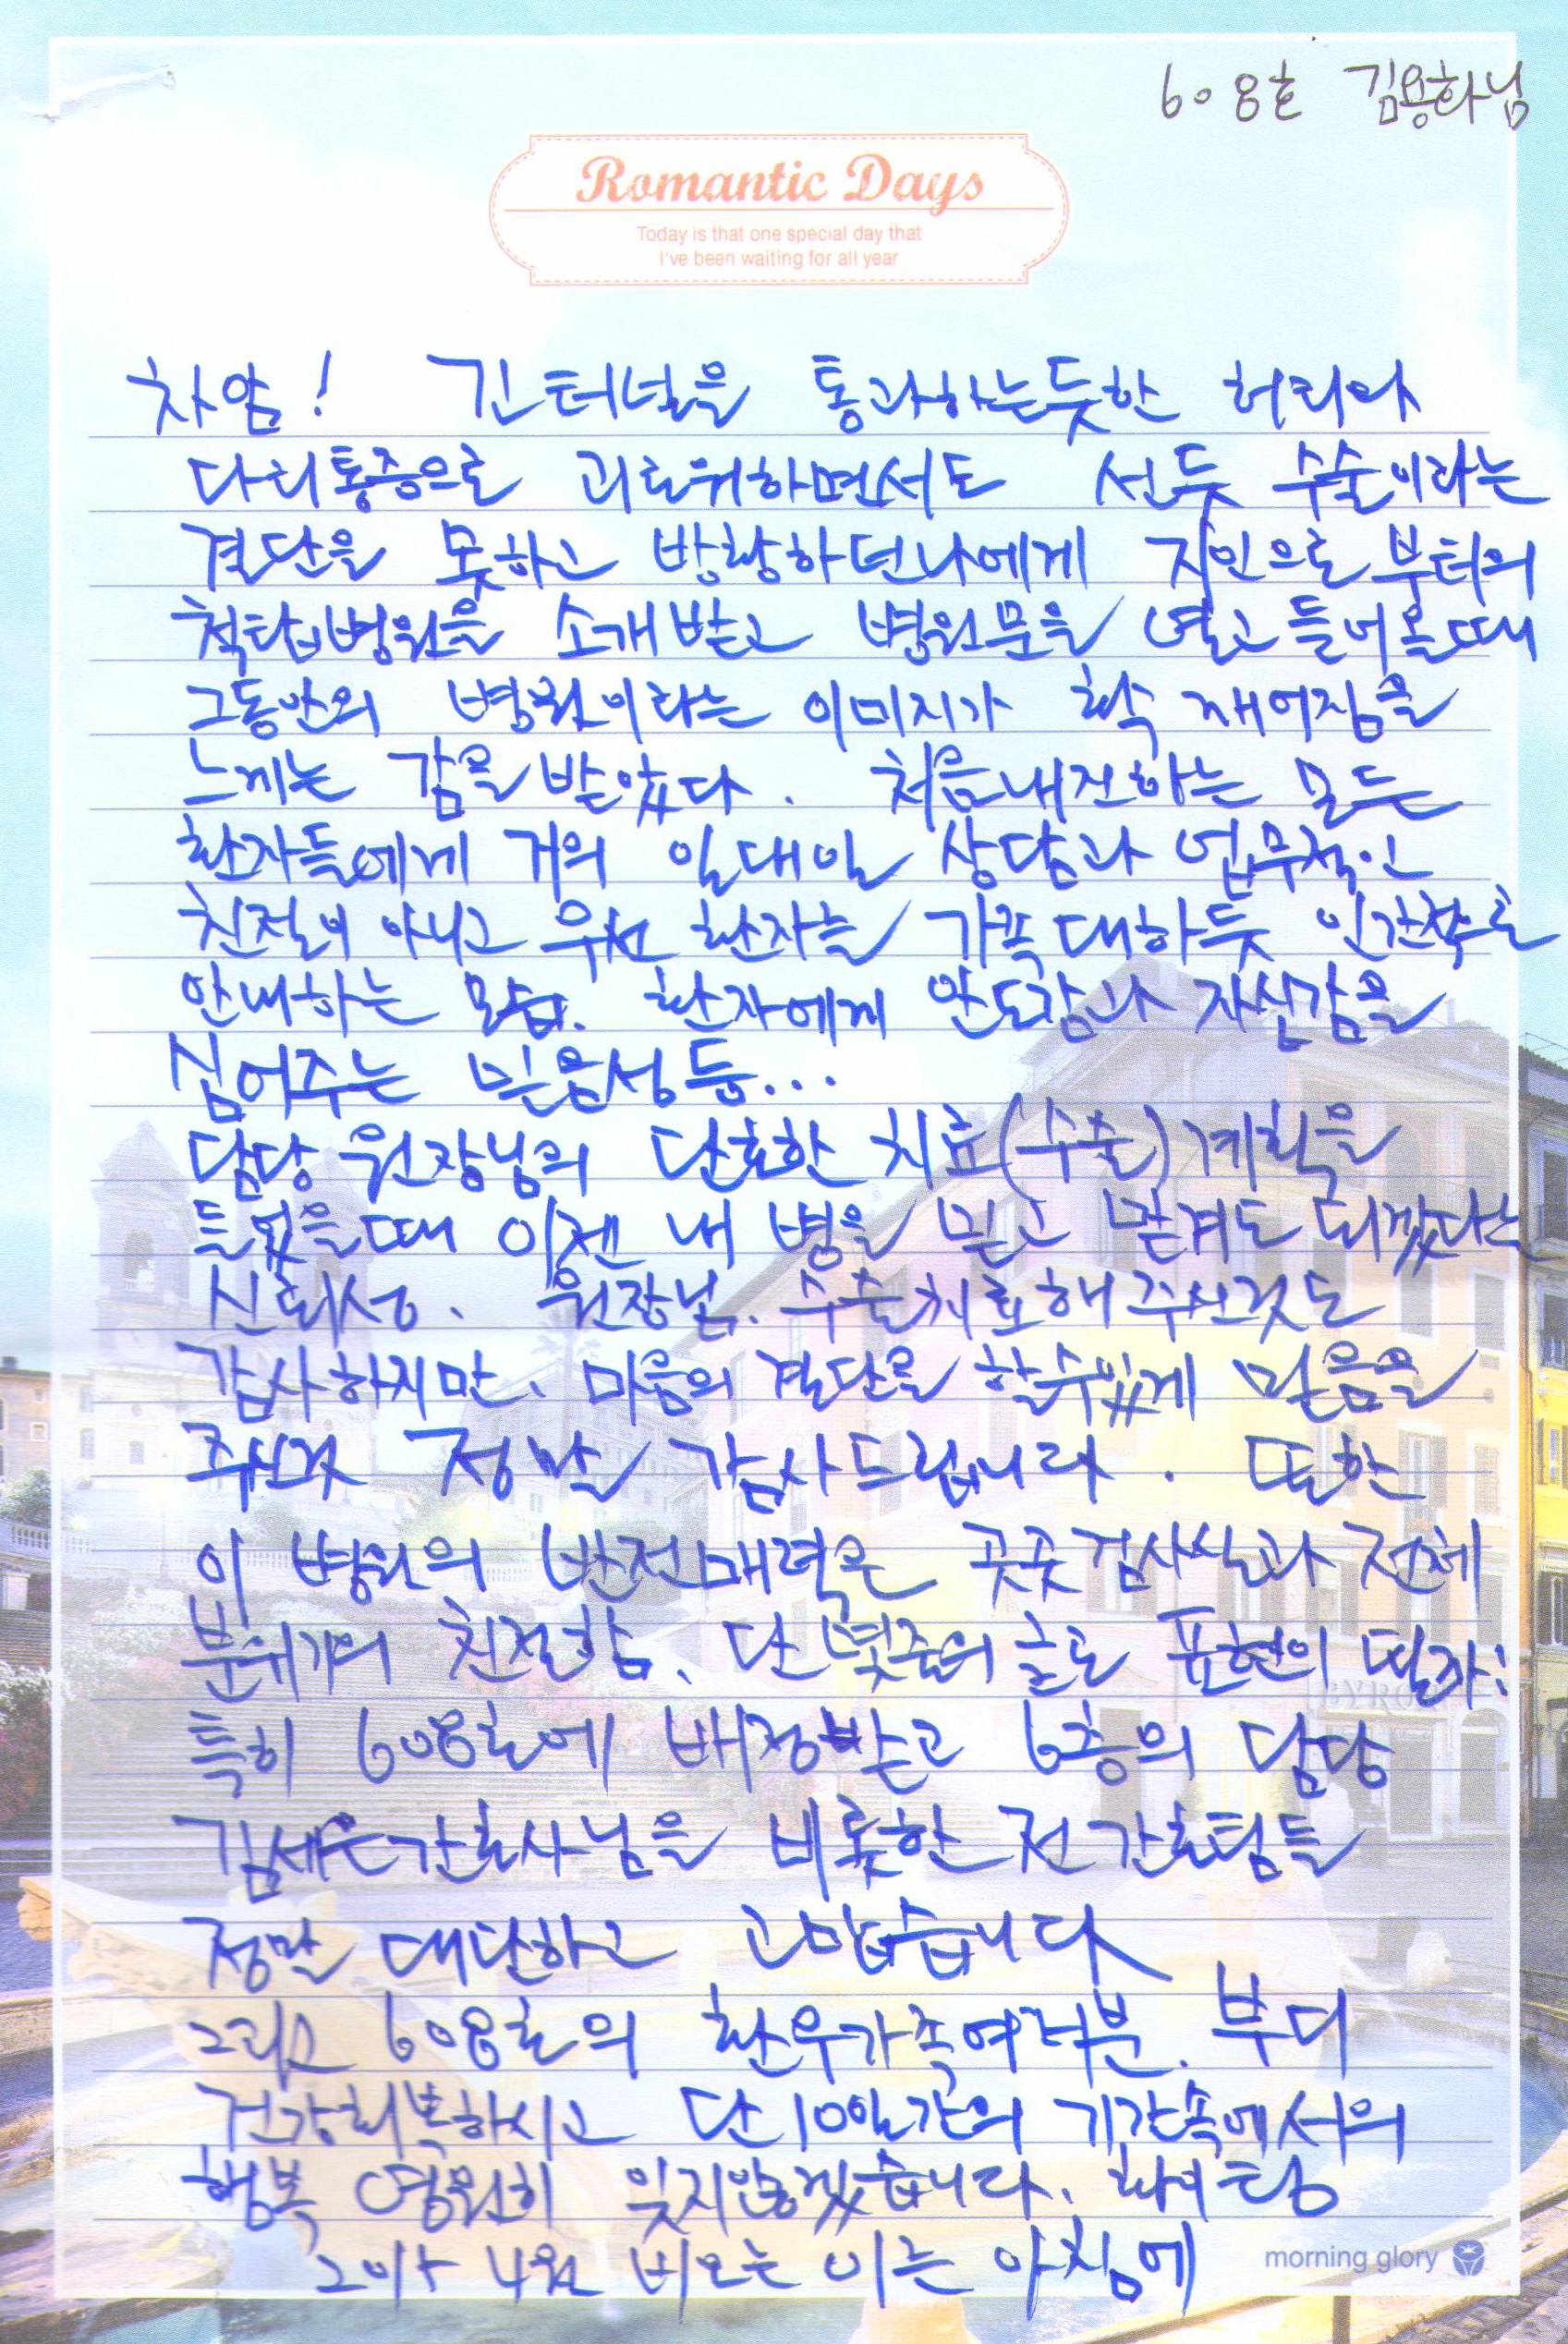 608호 김용하님
Romantic Days
Today is that one special day that
I've been waiting for all year
차암! 긴터널을 통과하는듯한 허리와
다리통증으로 괴로워하면서도 선듯 수술이라는
결단을 못하고 방황하던나에게 지인으로 부터의
척탑병원을 소개받고 병원문을 열고 들어올때
그동안의 병원이라는 이미지가 확 깨어짐을
느끼는 감을 받았다. 처음내진하는 모든
환자들에게 거의 일대일 상담과 업무적인
친절이 아니고 우선 환자를 가족대하듯 인간적으로
안내하는 모습. 환자에게 안도감과 자신감을
심어주는 믿음성 등...
담당 원장님의 단호한 치료(수술)계획을
들었을때 이젠 내 병을 믿고 맡겨도 되겠다는
신뢰성. 원장님. 수술치료해주신것도
감사하지만, 마음의 결단을 할수있게 믿음을
주신것 정말 감사드립니다. 또한
이 병원의 반전매력은 곳곳 검사실과 전체
분위기의 친절함, 단 몇줄의 글로 표현이 될까!
특히 608호에 배정받고 6층의 담당
김세은간호사님을 비롯한 전 간호팀들
정말 대단하고 고맙습니다
그리고 608호의 환우가족여러분. 부디
건강회복하시고 단10일간의 기간속에서의
행복 영원히 잊지않겠습니다. 화이팅
4월 비오는 아침에
morning glory